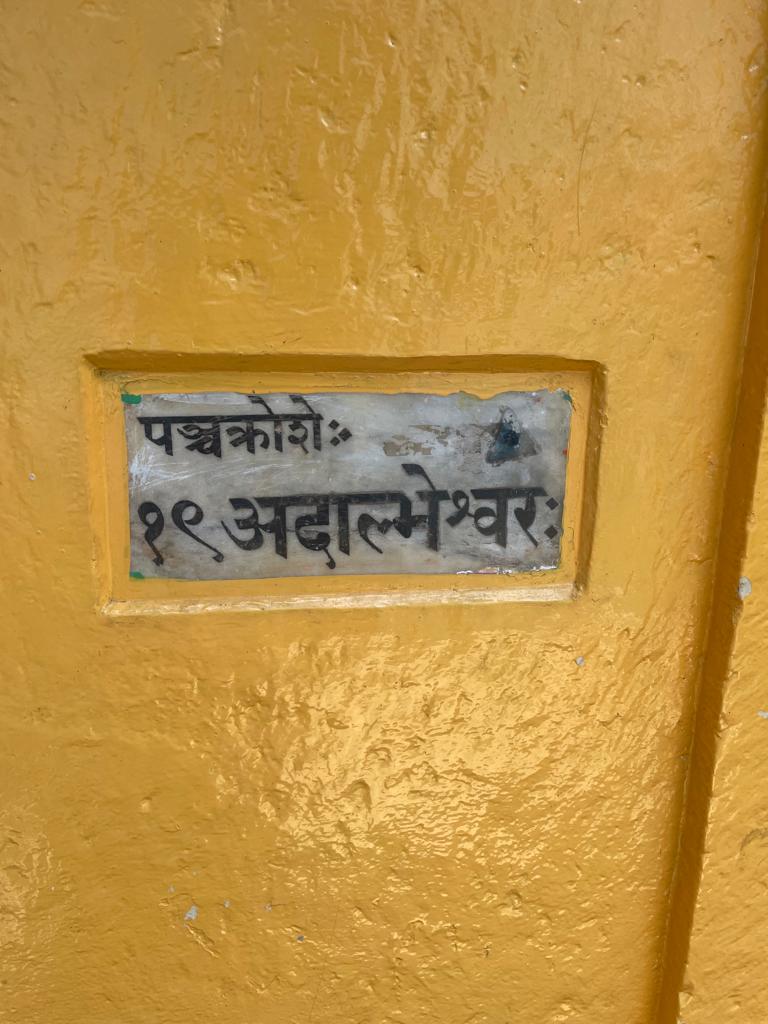 पञ्चक्रोशेः
१९ अदाल्भेश्वरः